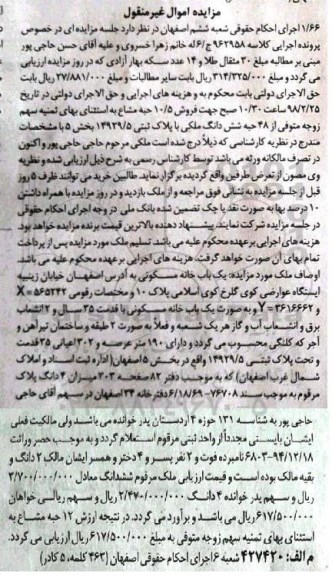 مزایده اموال غیرمنقول
۱/۶۶ اجرای احکام حقوقی شعبه ششم اصفهان در نظر دارد جلسه مزایده ای در خصوص
پرونده اجرایی کلاسه ۹۶۲۹۵۸ ج/۶ له خانم زهرا خسروی و علیه آقای حسن حاجی پور
مبنی بر مطالبه مبلغ ۳۰ مثقال طلا و ۱۴ عدد سکه بهار آزادی که در روز مزایده ارزیابی
می گردد و مبلغ ۳۱۴/۳۲۵/۰۰۰ ریال بابت سایر مطالبات و مبلغ ۲۷/۸۸۱/۰۰۰ ریال بابت
حق الاجرای دولتی بابت محکوم به و هزینه های اجرایی و حق الاجرای دولتی در تاریخ
۹۸/۲/۲۵ ساعت ۱۰/۳۰ صبح جهت فروش ۱۰/۵ حبه مشاع به استثنای بهای ثمنیه سهم
زوجه متوفی از ۴۸ حبه شش دانگ ملکی با پلاک ثبتی ۱۴۹۲۹/۵ بخش ۵ با مشخصات
مندرج در نظریه کارشناسی که ذیلاً درج شده است ملکی مرحوم حاجی حاجی پور و اکنون
در تصرف مالکانه ورثه می باشد توسط کارشناس رسمی به شرح ذیل ارزیابی شده و نظریه
وی مصون از تعرض طرفین واقع گردیده برگزار نماید. طالبین خرید می توانند ظرف ۵ روز
قبل از جلسه مزایده به نشانی فوق مراجعه و از ملک بازدید و در روز مزایده با همراه داشتن
۱۰ درصد بها به صورت نقد یا چک تضمین شده بانک ملی در وجه اجرای احکام حقوقی
در جلسه مزایده شرکت نمایند. پیشنهاد دهنده بالاترین قیمت برنده مزایده خواهد بود.
هزینه های اجرایی برعهده محکوم علیه می باشد تسلیم ملک مورد مزایده پس از پرداخت
تمام بهای آن صورت خواهد گرفت. هزینه های اجرایی بر عهده محکوم علیه می باشد.
اوصاف ملک مورد مزایده: یک باب خانه مسکونی به آدرس اصفهان خیابان زینبیه
ایستگاه عوارضی کوی گلرخ کوی اسلامی پلاک ۱۰ و مختصات رقومی X = ۵۶۵۲۴۲
و Y = ۳۶۱۶۶۶۲ و به صورت یک باب خانه مسکونی با قدمت ۳۵ سال و ۲ انشعاب
برق و انشعاب آب و گاز هر یک شعبه و فعلاً به صورت ۲ طبقه و ساختمان تیرآهن و
آجر که کلنگی محسوب می گردد و دارای ۱۹۰ متر عرصه و ۳۰۲ اعیانی ۳۵ قدمت
و تحت پلاک ثبتی ۱۴۹۲۹/۵ واقع در بخش ۵ اصفهان( اداره ثبت اسناد و املاک
شمال غرب اصفهان) که به موجب دفتر ۸۲ صفحه ۳۰۳ میزان ۴ دانگ پلاک
مرقوم به موجب سند ۷۶۷۰۸-۶/۱۸/۶۹ دفتر خانه ۳۴ اصفهان در سهم آقای حاجی
حاجی پور به شناسه ۱۳۱ حوزه ۴ اردستان پدر خوانده می باشد ولی مالکیت فعلی
ایشان بایستی مجدداً از واحد ثبتی مرقوم استعلام گردد و به موجب حصر وراثت
۶۸۰۳-۹۴/۱۲/۱۸ نامبرده فوت و ۲ نفر پسر و ۴ دختر و همسر ایشان مالک ۲ دانگ و
بقیه مالک بوده است و قیمت ارزیابی ملک مرقوم ششدانگ معادل ۳/۷۰۰/۰۰۰/۰۰۰
ریال و سهم پدر خوانده ۴ دانگ ۲/۴۷۰/۰۰۰/۰۰۰ ریال و سهم ریالی خواهان
۶۱۷/۵۰۰/۰۰۰ ریال می باشد و برآورد می گردد. در نتیجه ارزش ۱۲ حبه مشاع به
استثنای بهای ثمنیه سهم زوجه متوفی به مبلغ ۶۱۷/۵۰۰/۰۰۰ ریال ارزیابی می گردد.
م الف: ۴۲۷۴۲۰ شعبه ۶ اجرای احکام حقوقی اصفهان (۴۶۳ کلمه، ۵ کادر)